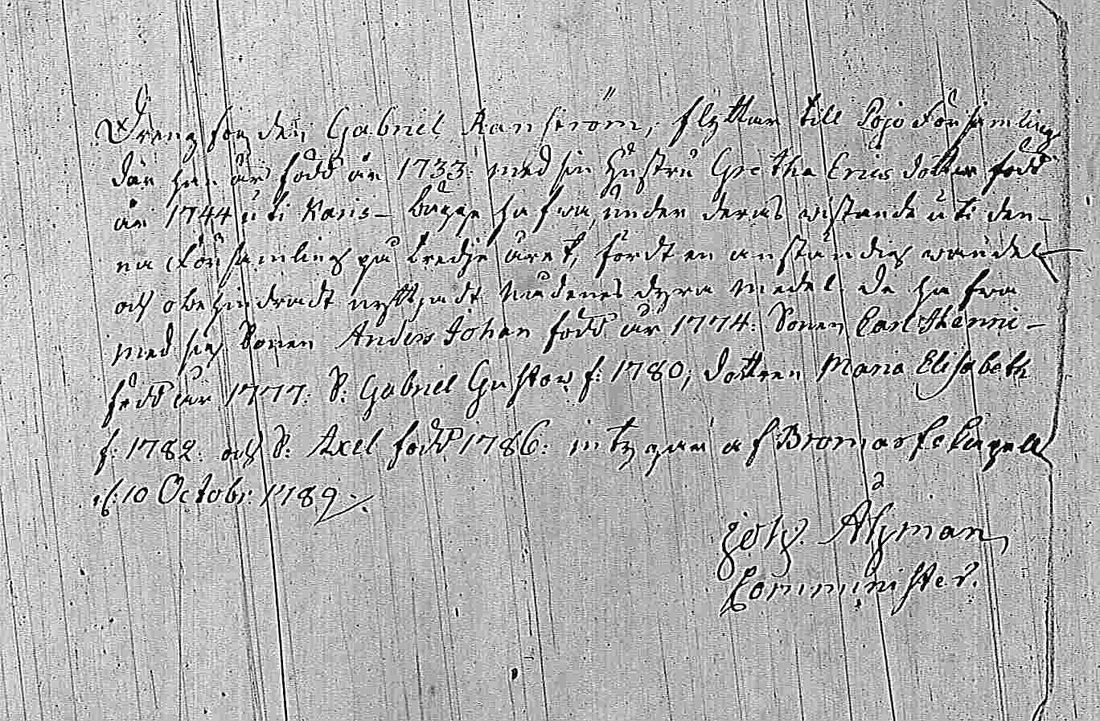 Drengfogden, Gabriel Ranström, flyttar till Pojo Församling
där han är född år 1733. med sin Hustru Gretha Ericsdotter född
år 1744 uti Karis- bägge hafwa under deras wistande uti den-
na Församling på tredje året, fördt en anständig wandel
och obehindradt nyttjadt nådenes dyra medel. De hafwa
med sig Sonen Anders Johan född år 1774: Sonen Carl Henric-
född år 1777: S: Gabriel Gustaw f: 1780, dottren Maria Elisabeth
f: 1782: och S: Axel född 1786: intygar af Bromarf Capell
d: 10 Octobr: 1789.
Joh. Åhman
Comminister.